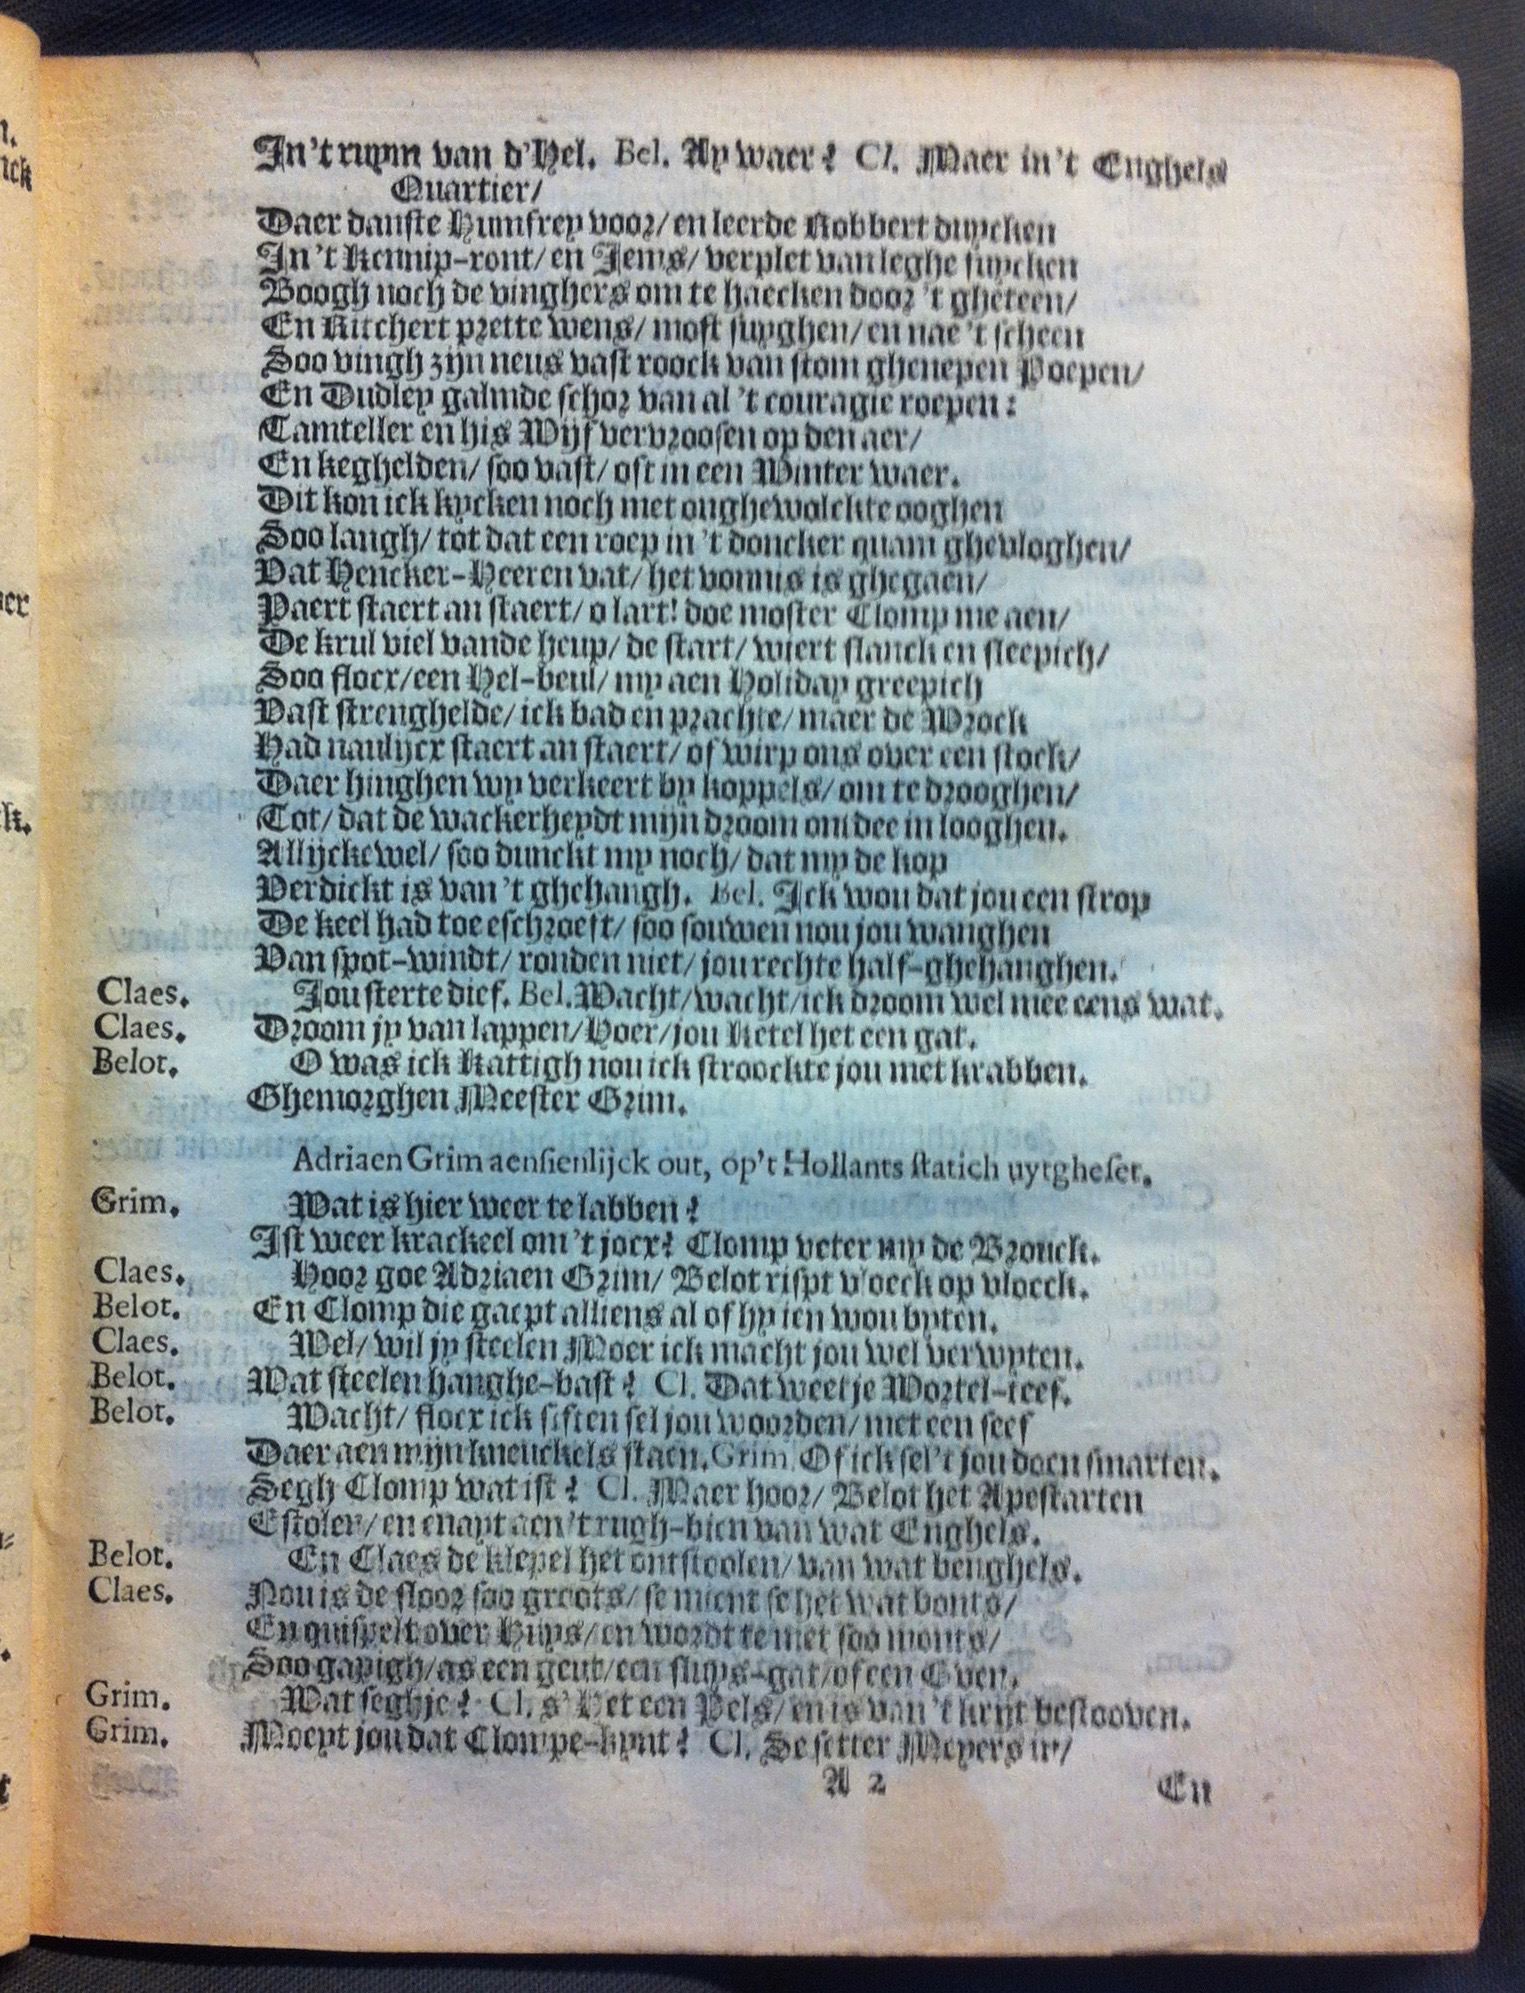 In't ruym van d'Hel. Bel. Ay waer? Cl. Maer in't Enghels
Quartier/
Daer danste Humfrey voor/ en leerde Robbert duycken
In't kennip-ront/ en Jems/ verplet van leghe fuycken
Boogh noch de vinghers om te haecken door 't gheteen/
En Ritchert prette wens/ most suyghen/ en nae 't scheen
Soo vingh zijn neus vast roock van stom ghenepen Poepen/
En Dudley galmde schor van al 't couragie roepen:
Tamteller en his Wijf vervroosen op den aer/
En keghelden/ soo vast/ oft in een Winter waer.
Dit kon ick kycken noch met onghewolckte ooghen
Soo langh/ tot dat een roep in 't doncker quam ghevloghen/
Vat Hencker-Heeren vat/ het vonnis is ghegaen/
Paert staert an staert/ o lart! doe moster Clomp me aen/
De krul viel vande heup/ de start/ wiert slanck en sleepich/
Soo flocx/ een Hel-beul/ my aen Holiday greepich
Vast strenghelde/ ick bad en prachte/ maer de Wrock
Had naulijcx staert an staert/ of wirp ons over een stock/
Daer hinghen wy verkeert by koppels/ om te drooghen/
Tot/ dat de wackerheydt mijn droom om dee in looghen.
Allijckewel/ soo dunckt my noch/ dat my de kop
Verdickt is van 't ghehangh. Bel. Ick wou dat jou een strop
De keel had toe eschroeft/ soo souwen nou jou wanghen
Van spot-windt/ ronden niet/ jou rechte half-ghehanghen.
Claes. Jou sterte dief. Bel. Wacht/ wacht/ ick droom wel mee eens wat.
Claes. Droom jy van lappen/ Hoer/ jou Ketel het een gat.
Belot. O was ick Kattigh nou ick stroockte jou met krabben.
Ghemorghen Meester Grim.
Adriaen Grim aensienlijck out, op't Hollants statich uytgheset.
Grim. Wat is hier weer te labben?
Ist weer krackeel om 't jocx? Clomp veter my de Brouck.
Claes. Hoor goe Adriaen Grim/ Belot rispt vloeck op vloeck.
Belot. En Clomp die gaept alliens al of hy ien wou byten.
Claes. Wel/ wil jy steelen Moer ick macht jou wel verwyten.
Belot. Wat steelen hanghe-bast? Cl. Dat weet je Wortel-teef.
Belot. Wacht/ flocx ick siften sel jou woorden/ met een seef
Daer aen mijn kneuckels staen. Grim. Of ick sel't jou doen smarten.
Segh Clomp wat ist? Cl. Maer hoor/ Belot het Apestarten
Estolen/ en enayt aen 't rugh-bien van wat Enghels.
Belot. En Claes de klepel het ontstoolen/ van wat benghels.
Claes. Nou is de sloor soo groots/ se mient se het wat bonts/
En quispelt over Huys/ en wordt te met soo monts/
Soo gapigh/ as een geut/ een sluys-gat/ of een Oven.
Grim. Wat seghje? Cl. s' Het een Pels/ en is van 't kryt bestooven.
Grim. Moeyt jou dat Clompe-kynt? Cl. Se setter Meyers in/
A 2 En